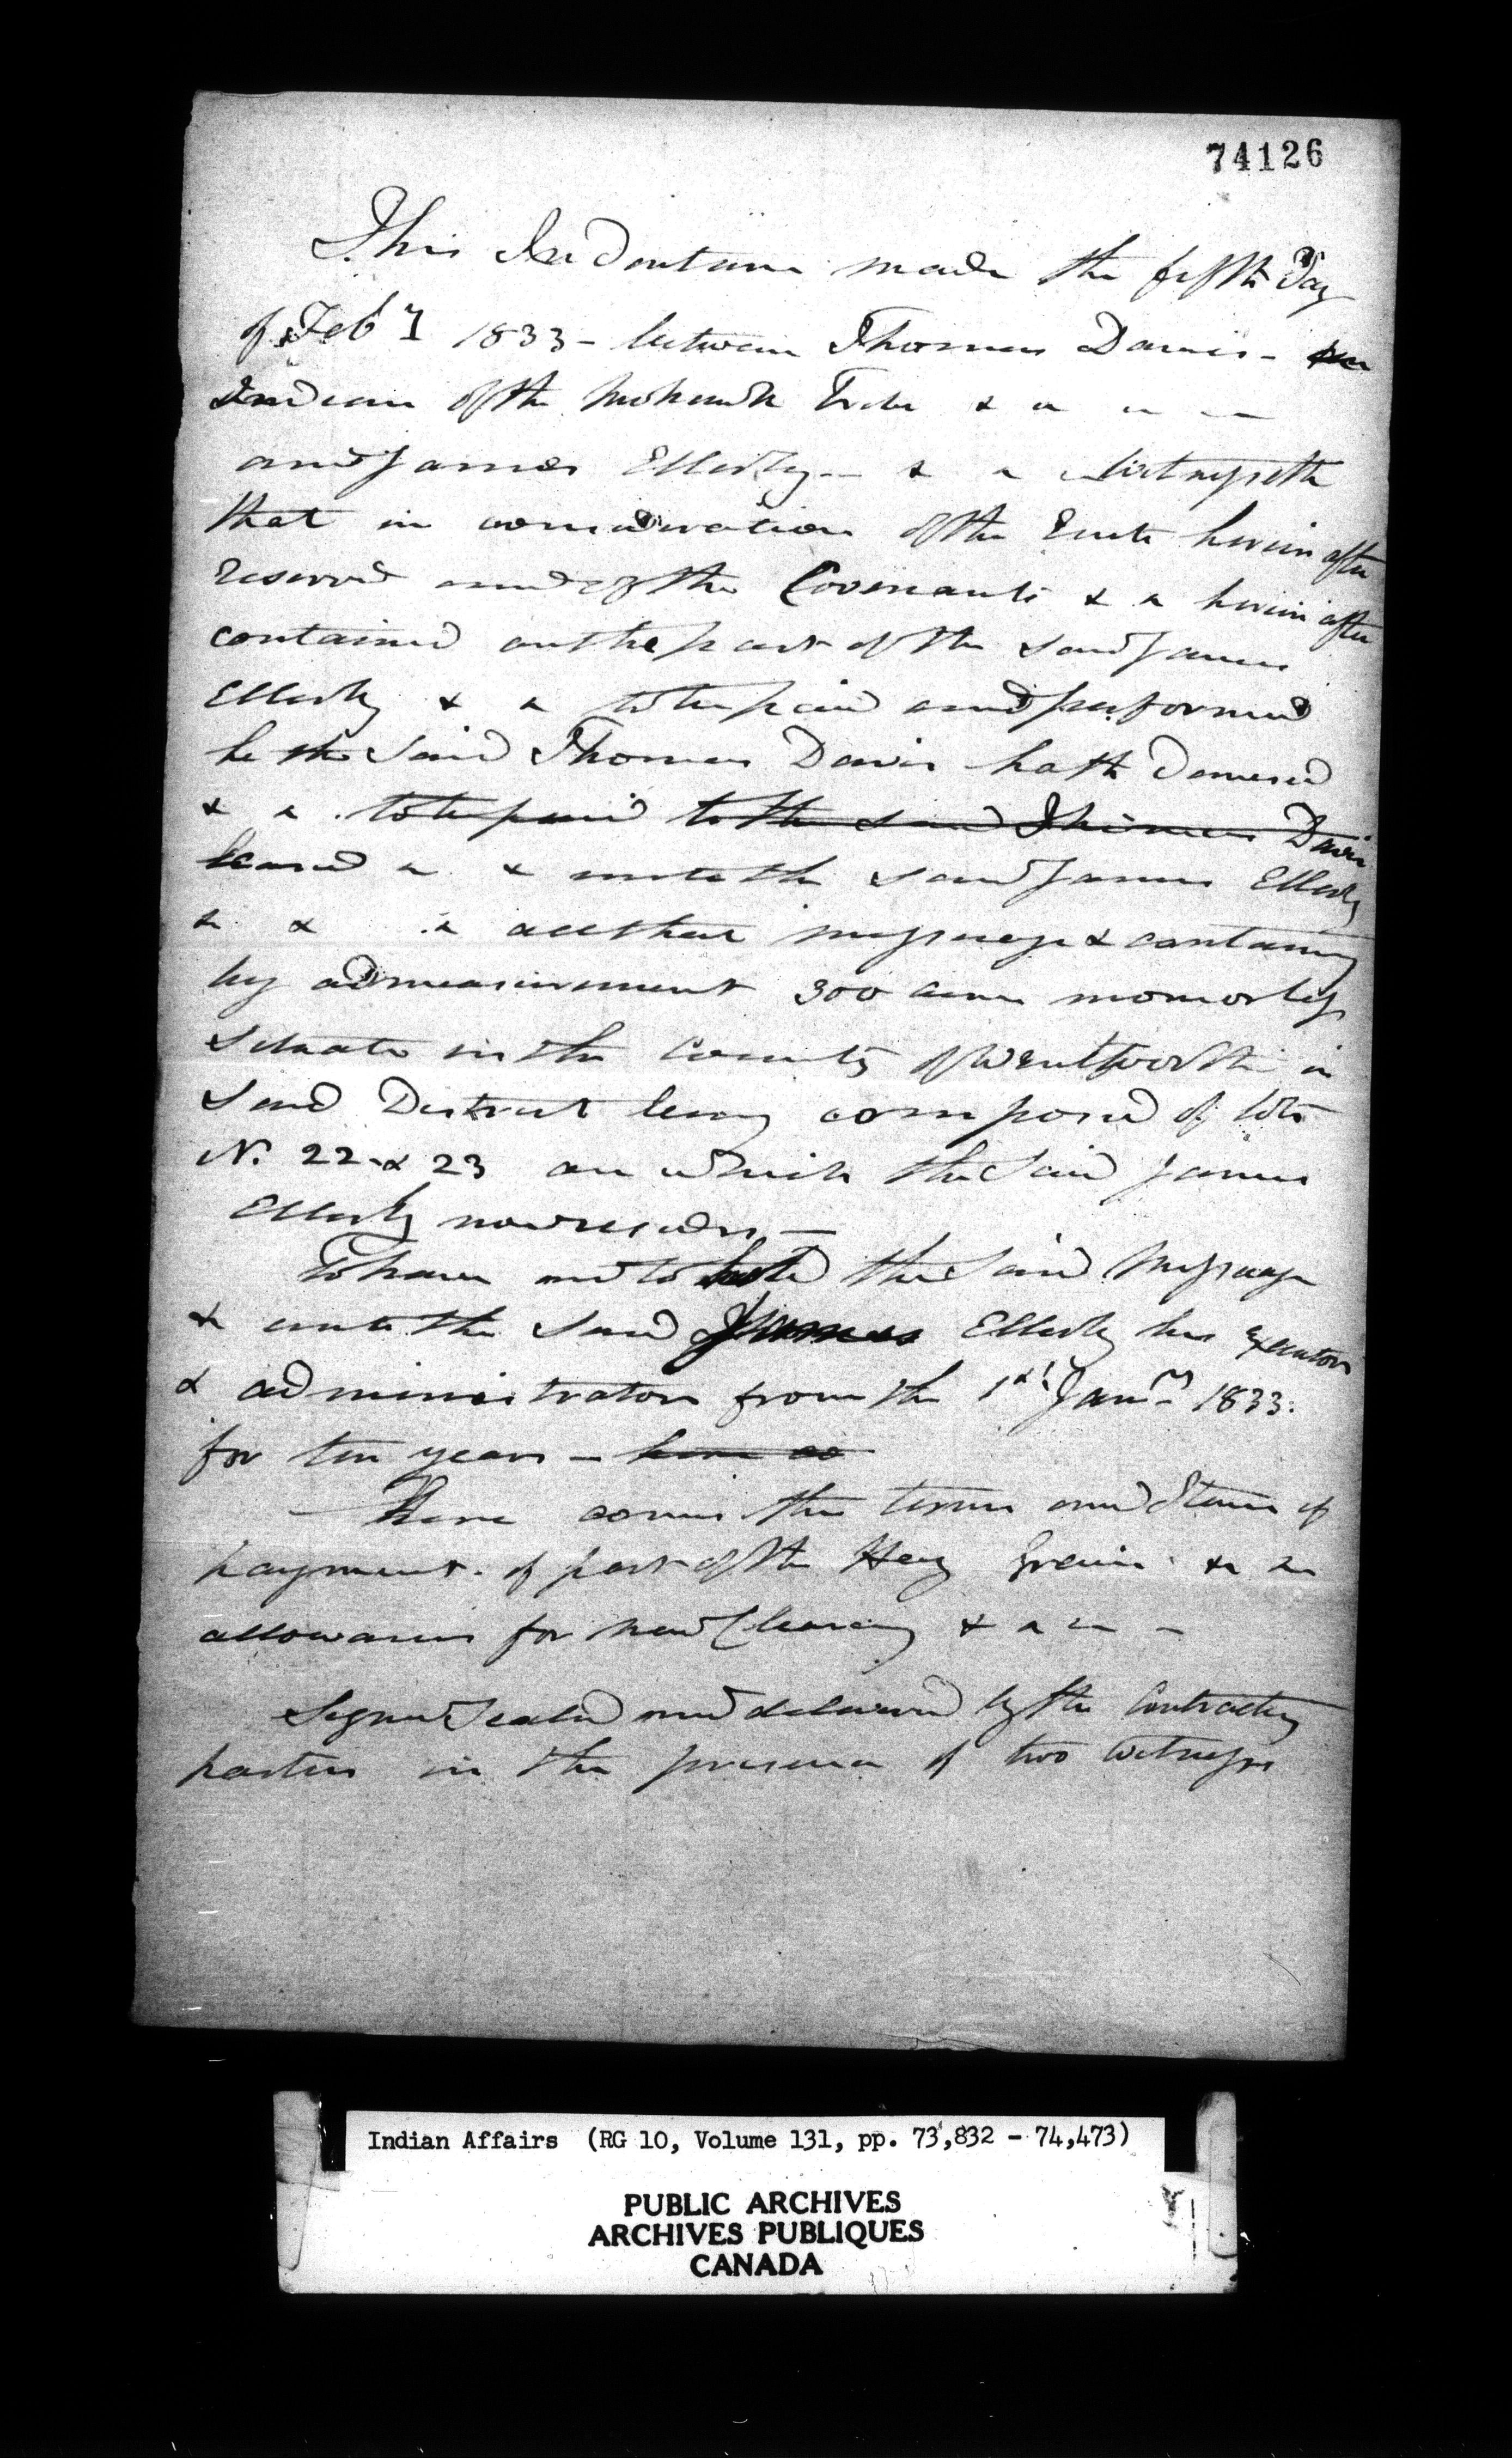 74126
This Indenture made the fifth Day
of Feby 1833 - between Thomas Davis -
Indian of the Mohawk Tribe & a
and James Ellerby -- & a Witnesseth
that in consideration of the Rents herein after
reserved and of the Covenants & a herein after
contained on the part of the said James
Ellerby & a to be paid and performed
he the said Thomas Davis hath Demised
& a . to be paid to the said Thomas Davis
leased a & unto the said James Ellerby
& & a all that messuage & containing
by admeasurement 300 acres more or less
situate in the County of Wentworth in
said District being composed of lots
N. 22 & 23 on which the said James
Ellerby now resides —
To have and to hold the said Messuage
& unto the said James Ellerby his Executors
& administrators from the 1st Jany 1833.
for ten years -
— Here comes the terms and times of
payment. of part of the Hay Grain & a
allowances for new Clearing & a
Signed Sealed and delivered by the Contracting
parties in the presence of two witnesses
Indian Affairs (RG 10, Volume 131, pp. 73,832 - 74,473)
PUBLIC ARCHIVES
ARCHIVES PUBLIQUES
CANADA